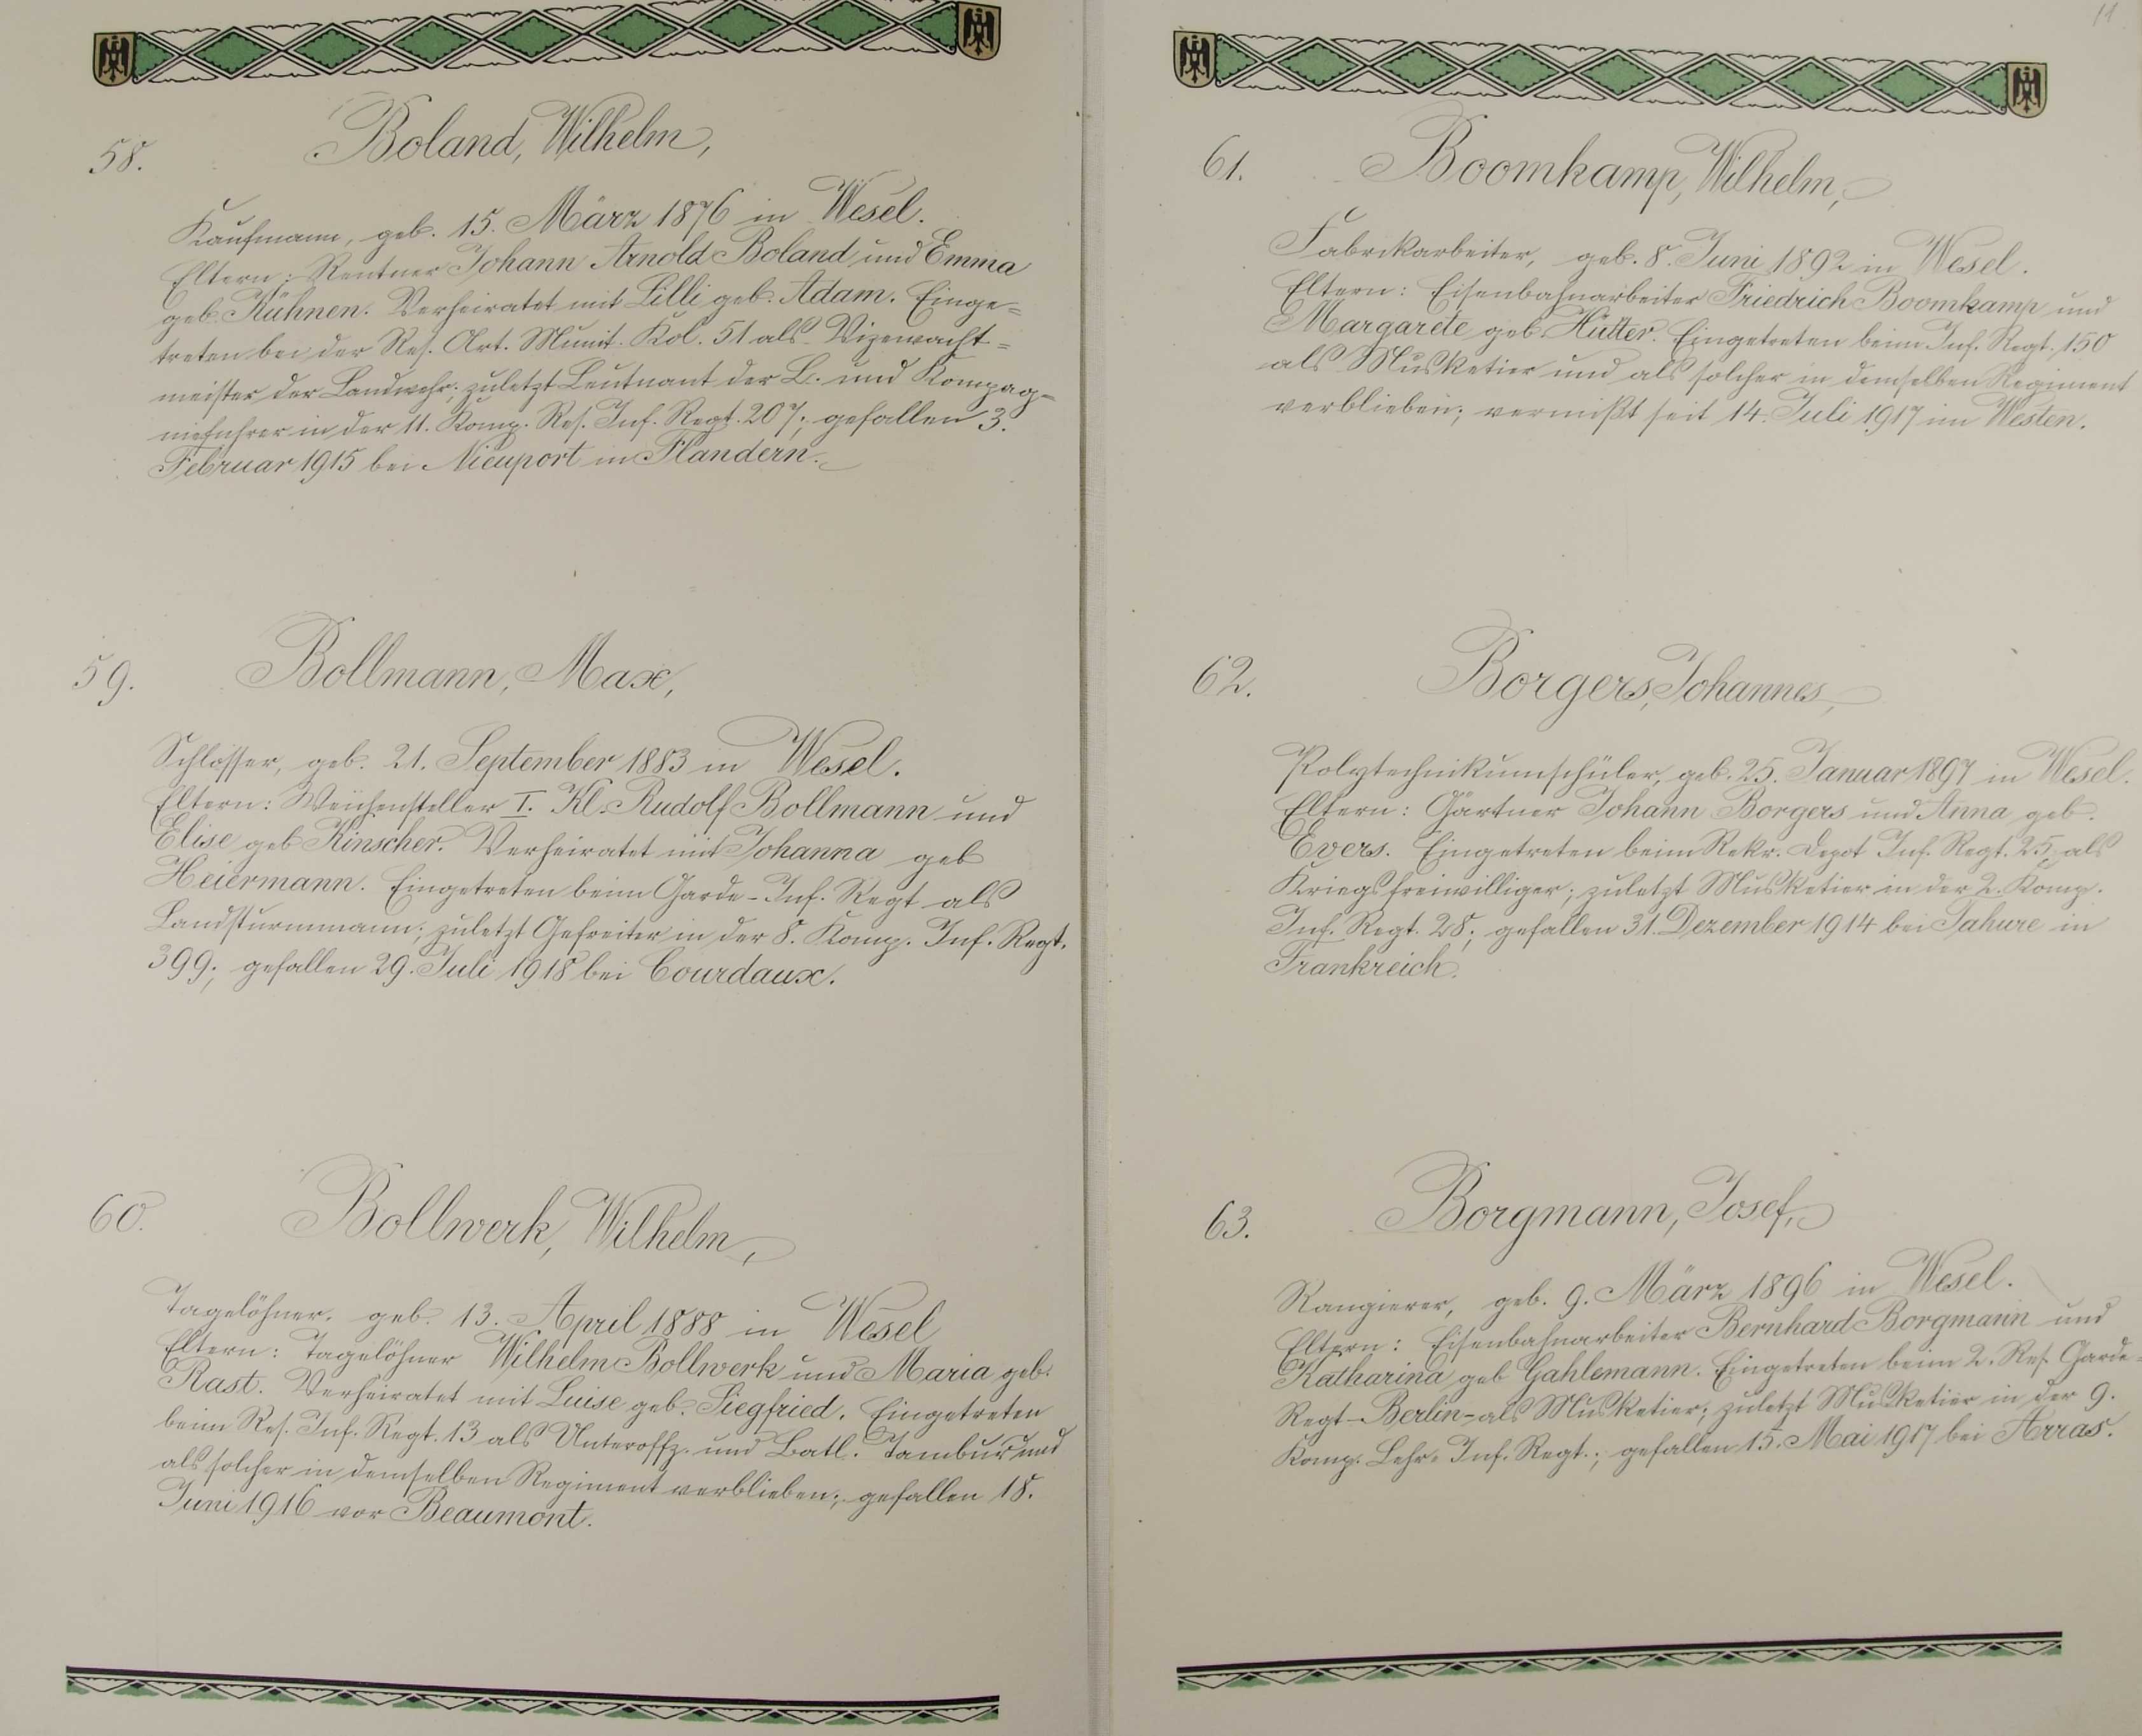 58.
Boland, Wilhelm,
Kaufmann, geb. 15. März 1876 in Wesel.
Eltern: Rentner Johann Arnold Boland und Emma
geb. Kühnen. Verheiratet mit Lilli geb. Adam. Einge=
treten bei der Res. Art. Munit. Kol. 51 als Vizewacht=
meister der Landwehr; zuletzt Leutnant der L. und Kompag=
nieführer in der 11. Komp. Res. Inf. Regt. 207; gefallen 3.
Februar 1915 bei Nieuport in Flandern.
59.
Bollmann, Max,
Schlosser, geb. 21. September 1883 in Wesel.
Eltern: Weichensteller I. Kl. Rudolf Bollmann und
Elise geb. Kinscher. Verheiratet mit Johanna geb
Heiermann. Eingetreten beim Garde-Inf. Regt als
Landsturmmann; zuletzt Gefreiter in der 8. Komp. Inf. Regt.
399; gefallen 29. Juli 1918 bei Courdaux.
60.
Bollwerk, Wilhelm,
Tagelöhner. geb. 13. April 1888 in Wesel
Eltern: Tagelöhner Wilhelm Bollwerk und Maria geb.
Rast. Verheiratet mit Luise geb. Siegfried. Eingetreten
beim Res. Inf. Regt. 13 als Unteroffz. und Batl. Tambur und
als solcher in demselben Regiment verblieben; gefallen 18.
Juni 1916 vor Beaumont.
11
61.
Boomkamp, Wilhelm,
Fabrikarbeiter, geb. 8. Juni 1892 in Wesel.
Eltern: Eisenbahnarbeiter Friedrich Boomkamp und
Margarete geb. Hütter. Eingetreten beim Inf. Regt. 150
als Musketier und als solcher in demselben Regiment
verblieben; vermißt seit 14. Juli 1917 im Westen.
62.
Borgers, Johannes,
Polytechnikumschüler, geb. 25. Januar 1897 in Wesel.
Eltern: Gärtner Johann Borgers und Anna geb.
Evers. Eingetreten beim Rekr. Depot Inf. Regt. 25, als
Kriegsfreiwilliger; zuletzt Musketier in der 2. Komp.
Inf. Regt. 28; gefallen 31. Dezember 1914 bei Tahure in
Frankreich.
63.
Borgmann, Josef,
Rangierer, geb. 9. März 1896 in Wesel.
Eltern: Eisenbahnarbeiter Bernhard Borgmann und
Katharina geb Gahlemann. Eingetreten beim 2. Res. Garde-
Regt-Berlin-als Musketier; zuletzt Musketier in der 9.
Komp. Lehr-Inf. Regt.; gefallen 15. Mai 1917 bei Arras.